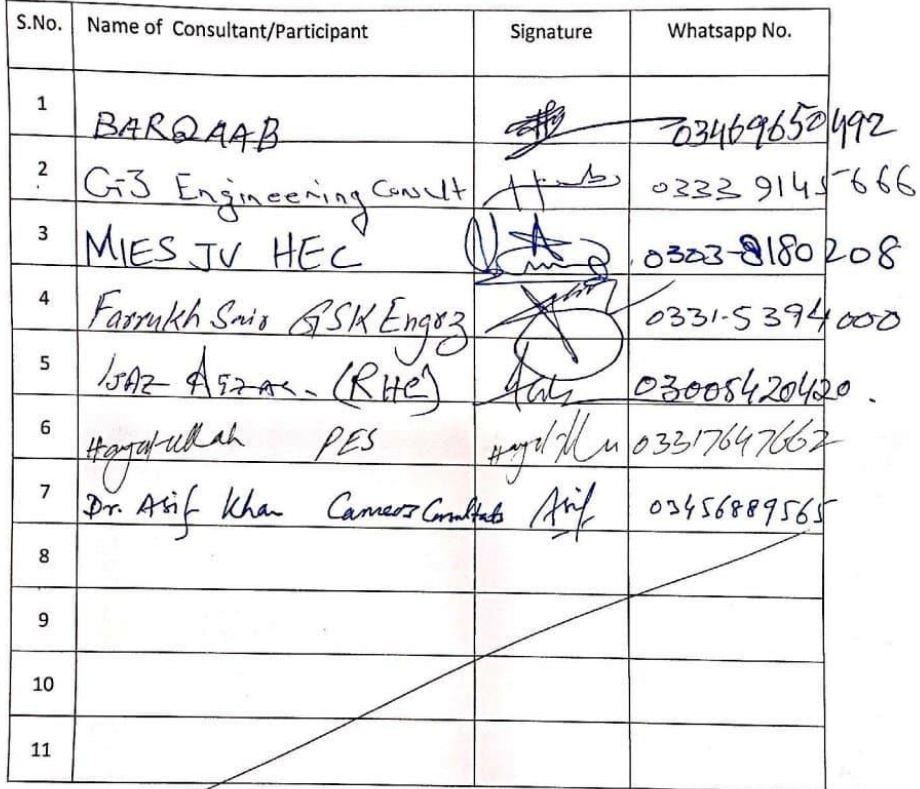 S.No. Name of Consultant/Participant Signature Whatsapp No.
1 BARQAAB 03469650492
2 G3 Engineering Consult 0333 9145666
3 MIES JV HEC 0303-8180208
4 Farrukh GSK Engrz 0331-5394000
5 (RHC) 03005420420.
6 Hayatullah PES 03317647662
7 Dr. Asif Khan Cameos Consultats Asif 03456889565
8
9
10
11